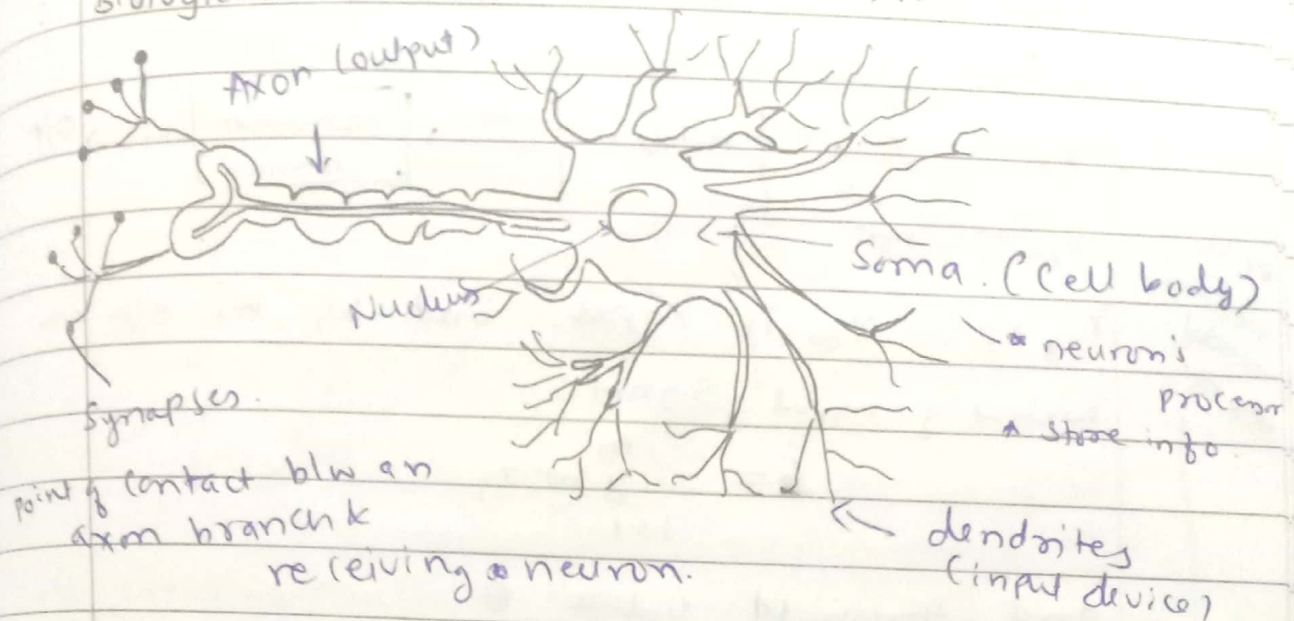 Axon (output)
Nucleus
Soma. (Cell body)
* neuron's
processor
* store info.
Synapses.
point of contact b/w an
axon branch &
receiving neuron.
dendrites
(input device)